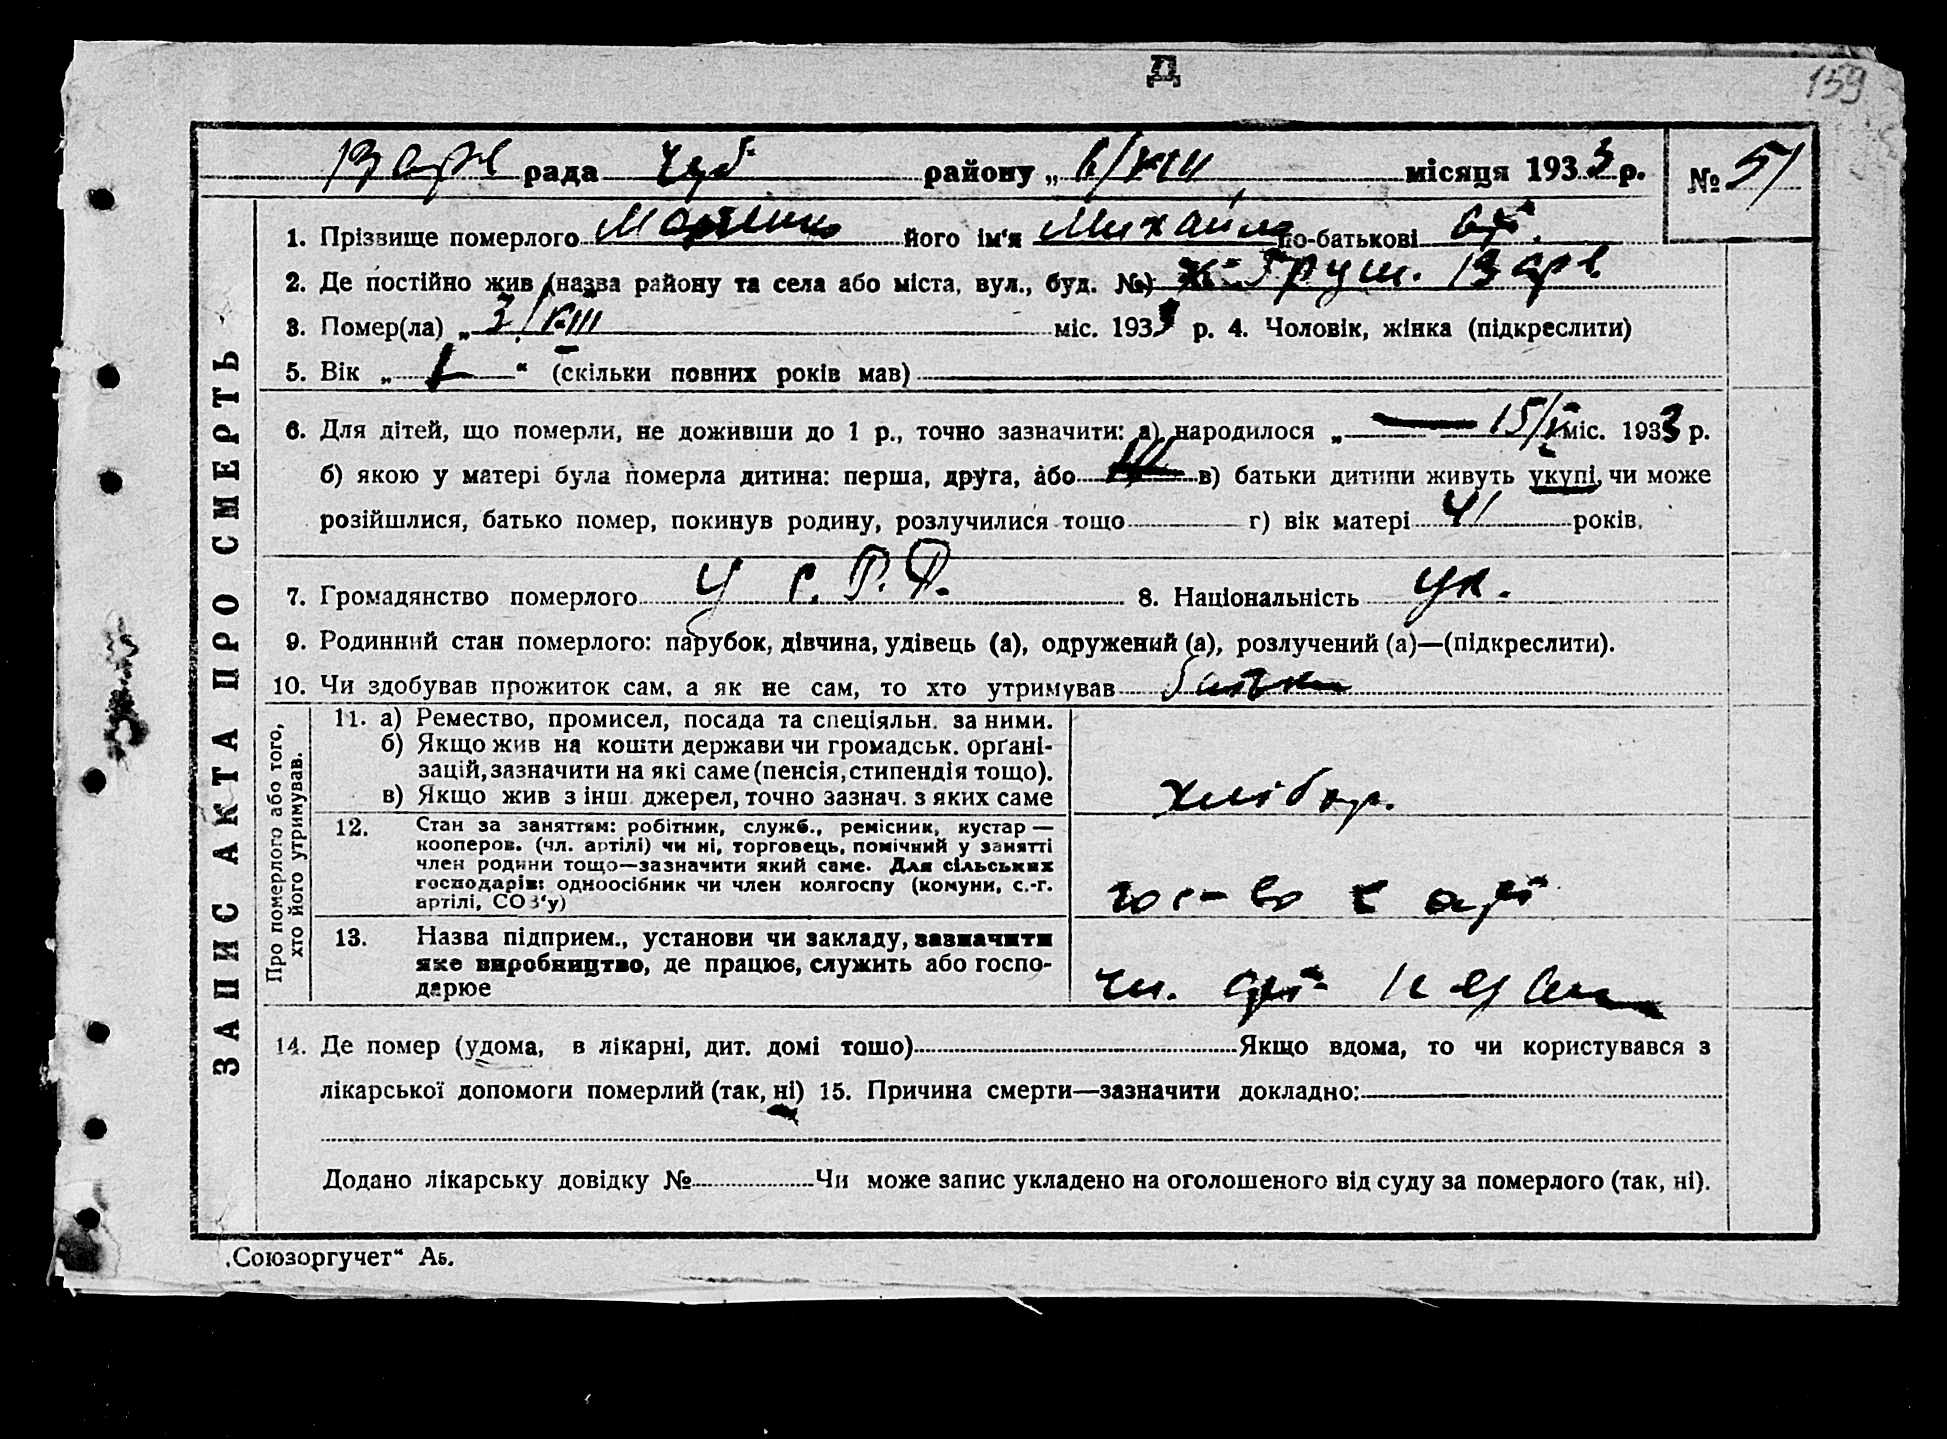 Д
159
Варв рада Чуб району „ 6/VIII місяця 1933 р. № 51
1. Прізвище померлого його ім'я Михайло по-батькові
2. Де постійно жив (назва району та села або міста, вул., буд. №) Груш. Варв.
3. Помер(ла) „ 3/VIII міс. 1933 р. 4. Чоловік, жінка (підкреслити)
5. Вік „ “ (скільки повних років мав)
6. Для дітей, що померли, не доживши до 1 р., точно зазначити: а) народилося „ 15/V міс. 1933 р.
б) якою у матері була померла дитина: перша, друга, або в) батьки дитини живуть укупі, чи може
розійшлися, батько помер, покинув родину, розлучилися тощо г) вік матері 41 років.
7. Громадянство померлого У С.Р.Р. 8. Національність Ук.
9. Родинний стан померлого: парубок, дівчина, удівець (а), одружений (а), розлучений (а)—(підкреслити).
10. Чи здобував прожиток сам, а як не сам, то хто утримував батьки
ЗАПИС АКТА ПРО СМЕРТЬ
Про померлого або того,
хто його утримував.
11. а) Ремество, промисел, посада та спеціяльн. за ними.
б) Якщо жив на кошти держави чи громадськ. орґані-
зацій, зазначити на які саме (пенсія, стипендія тощо).
в) Якщо жив з інш. джерел, точно зазнач. з яких саме
хлібор.
12. Стан за заняттям: робітник, служб., ремісник, кустар —
кооперов. (чл. артілі) чи ні, торговець, помічний у занятті
член родини тощо—зазначити який саме. Для сільських
господарів: одноосібник чи член колгоспу (комуни, с.-г.
артілі, СОЗ'у)
гос-во
13. Назва підприєм., установи чи закладу, зазначити
яке виробництво, де працює, служить або госпо-
дарює
чл. арт.
14. Де помер (удома, в лікарні, дит. домі тощо) Якщо вдома, то чи користувався з
лікарської допомоги померлий (так, ні) 15. Причина смерти—зазначити докладно:
Додано лікарську довідку № Чи може запис укладено на оголошеного від суду за померлого (так, ні).
„Союзоргучет“ А5.